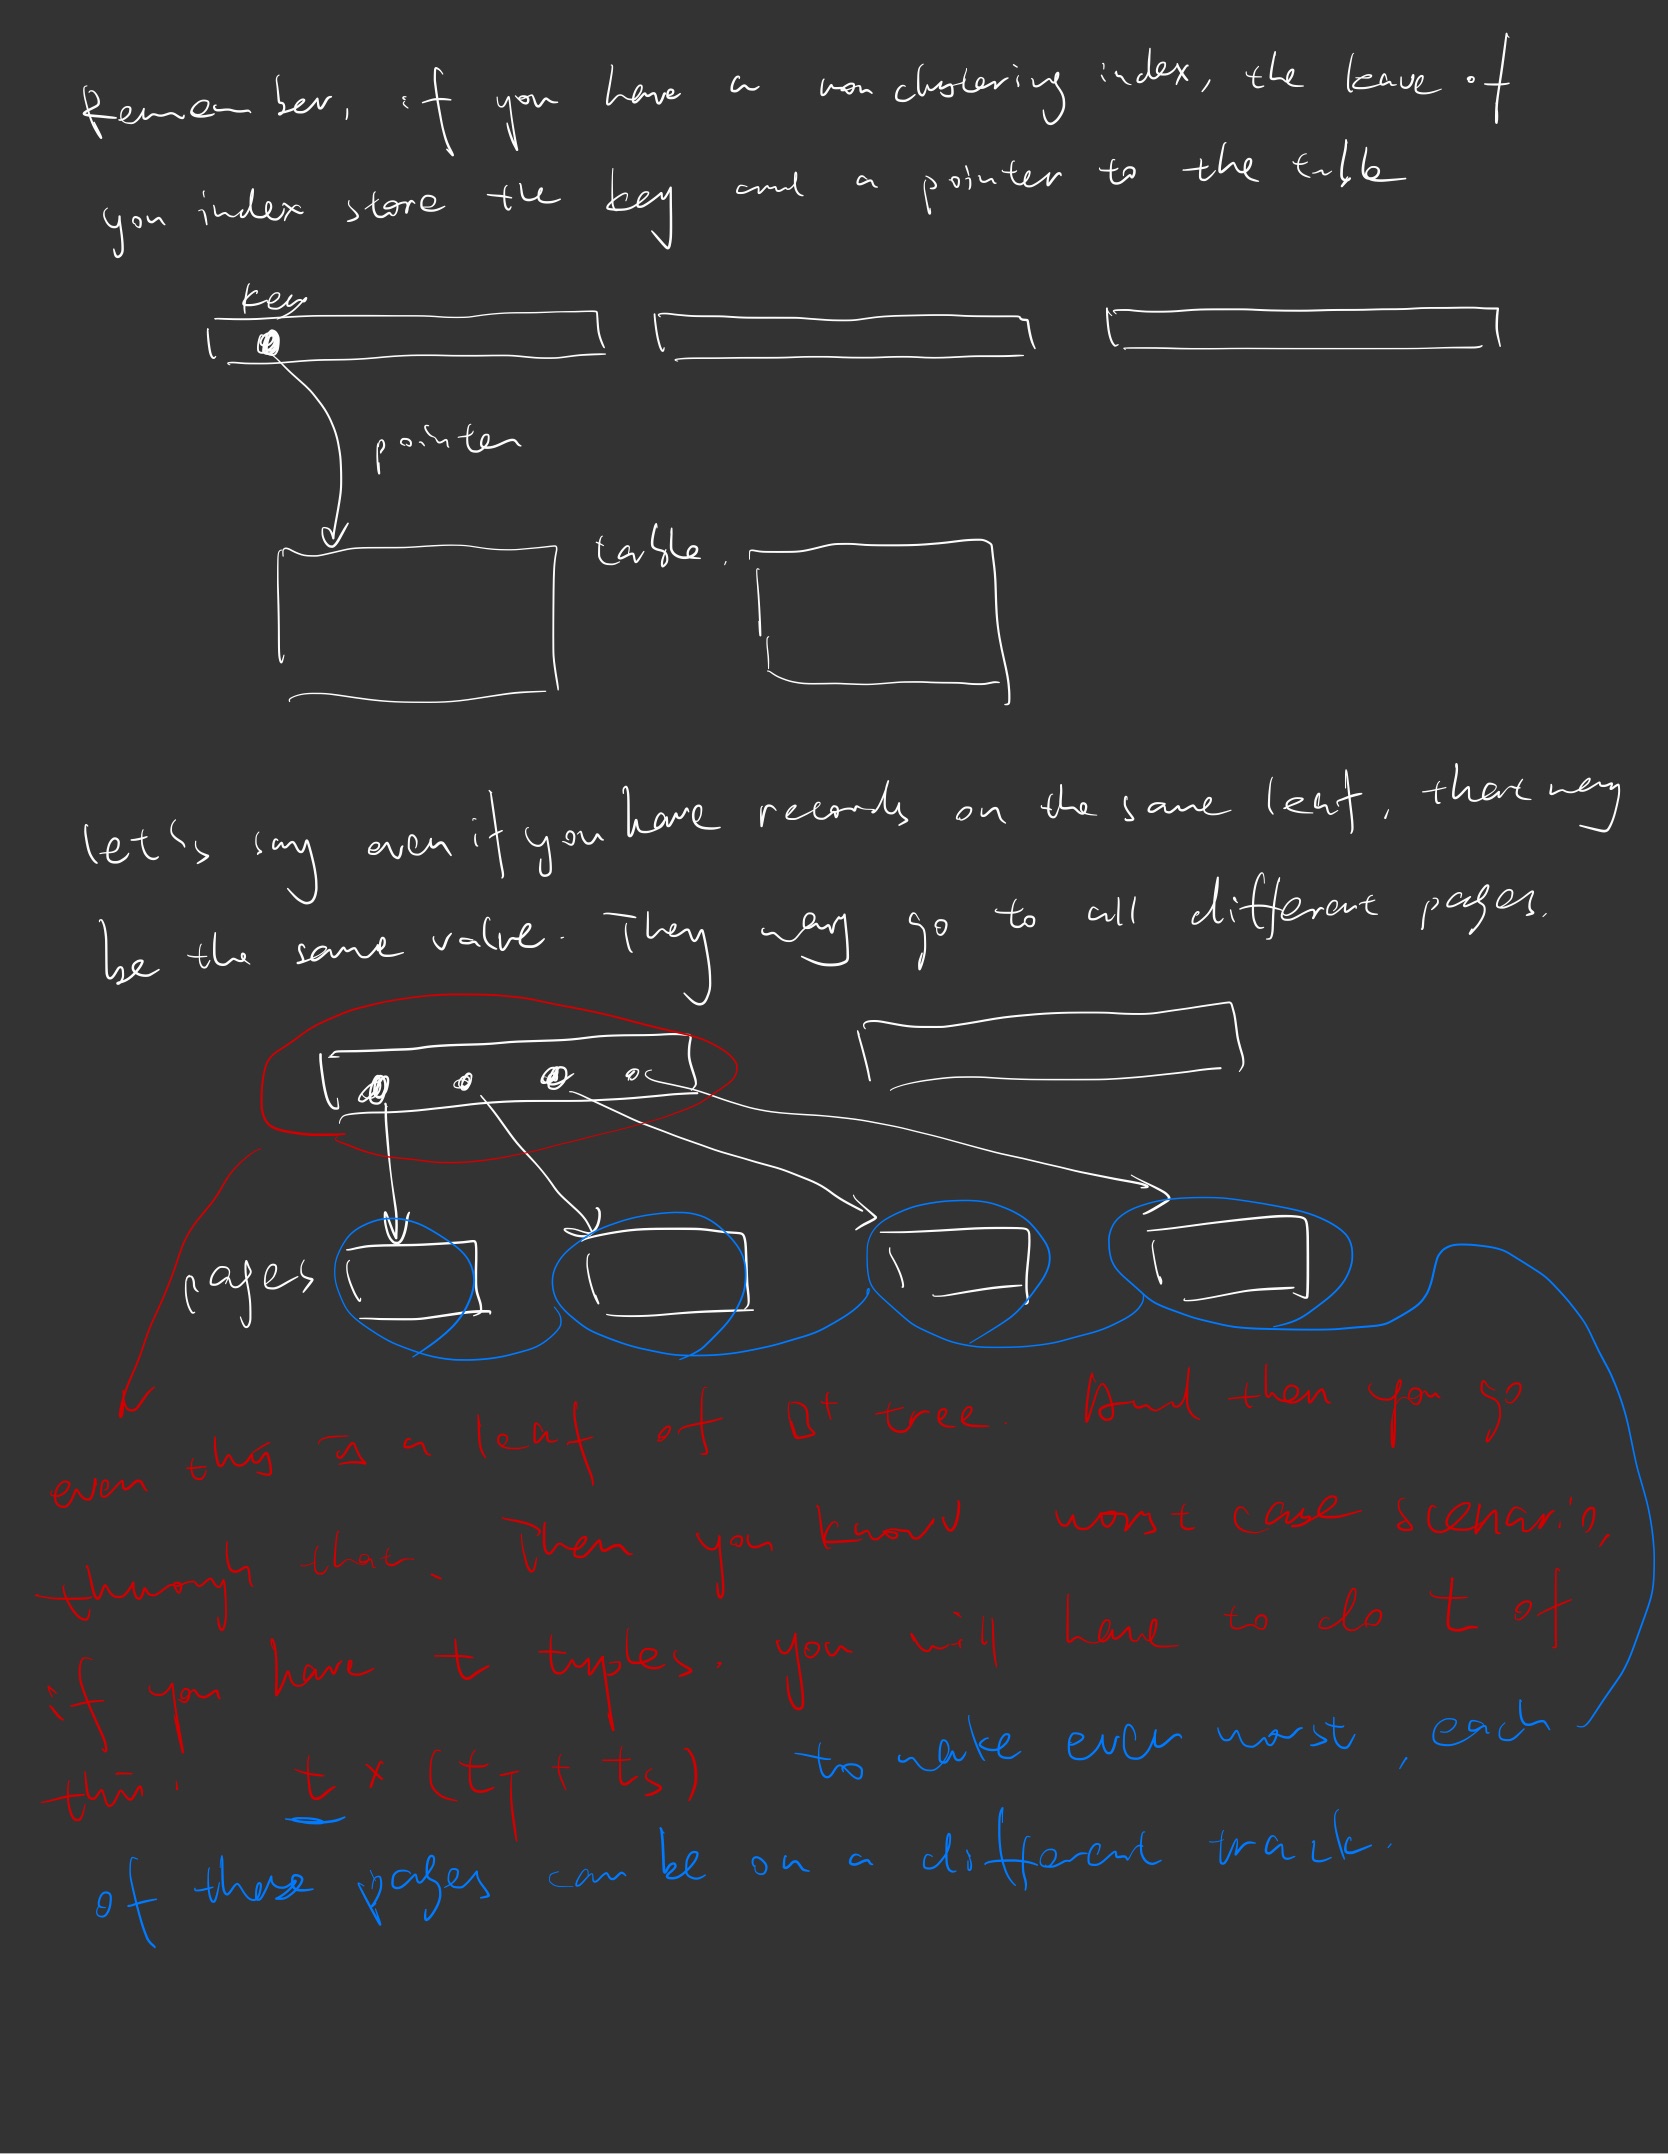 Remember, if you have a non clustering index, the leave of
you index store the key and a pointer to the table
key
pointer
table.
let's say even if you have records on the same leaf, that may
be the same value. They may go to all different pages.
pages
even this is a leaf of B+ tree. And then you go
through that. Then you know worst case scenario,
if you have t tuples. you will have to do t of
this. t × (tT + tS) to make even worst, each
of these pages can be on a different track.